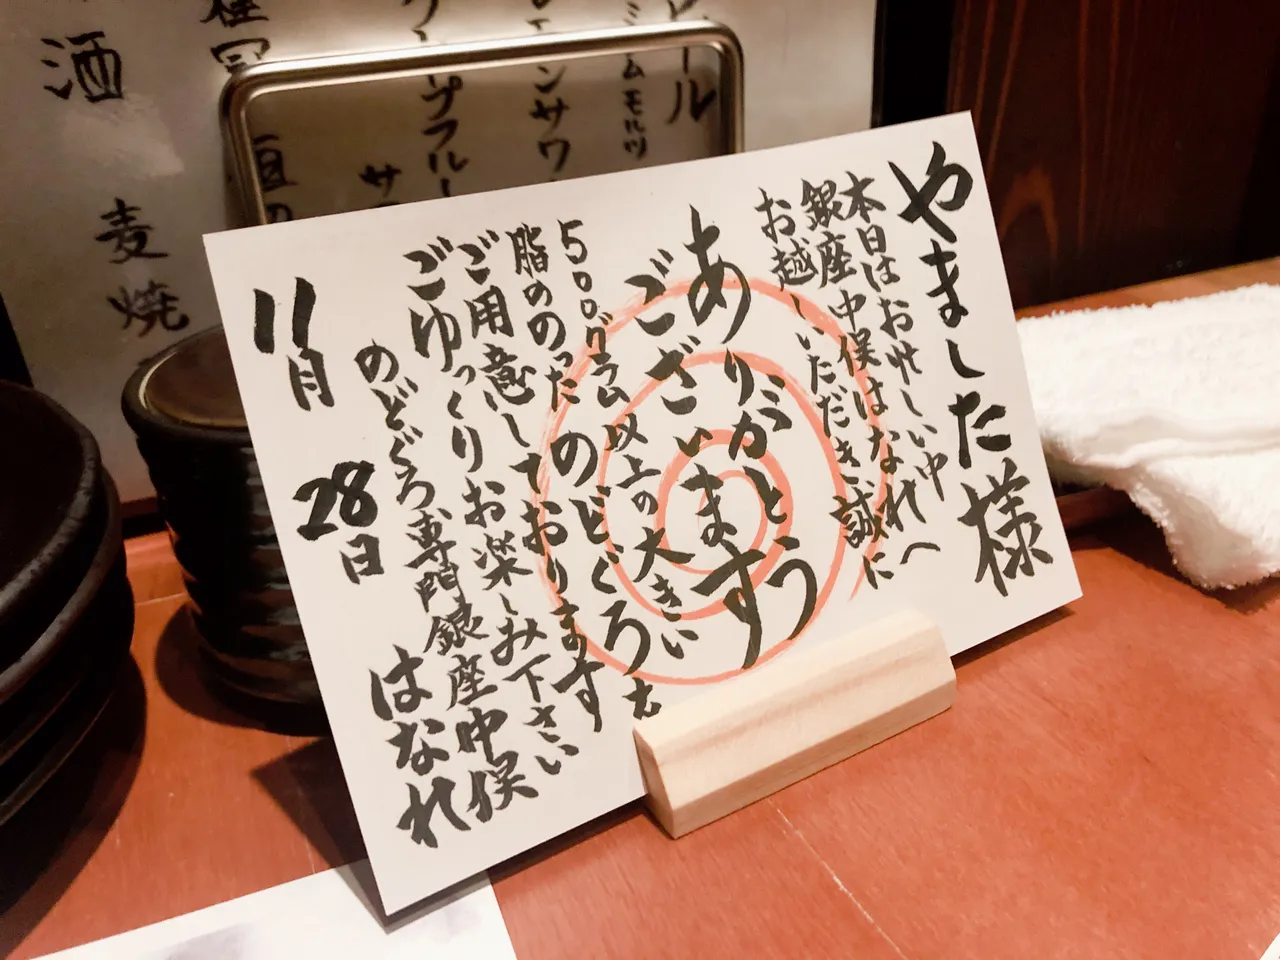 やました様
本日はお忙しい中
銀座中俣はなれへ
お越しいただき誠に
ありがとう
ございます
500グラム以上の大きい
脂ののったのどぐろを
ご用意しております
ごゆっくりお楽しみ下さい
のどぐろ専門銀座中俣
はなれ
11月28日
ビール
ミムモルツ
ンサワ
プフルー
サ
酒
麦焼